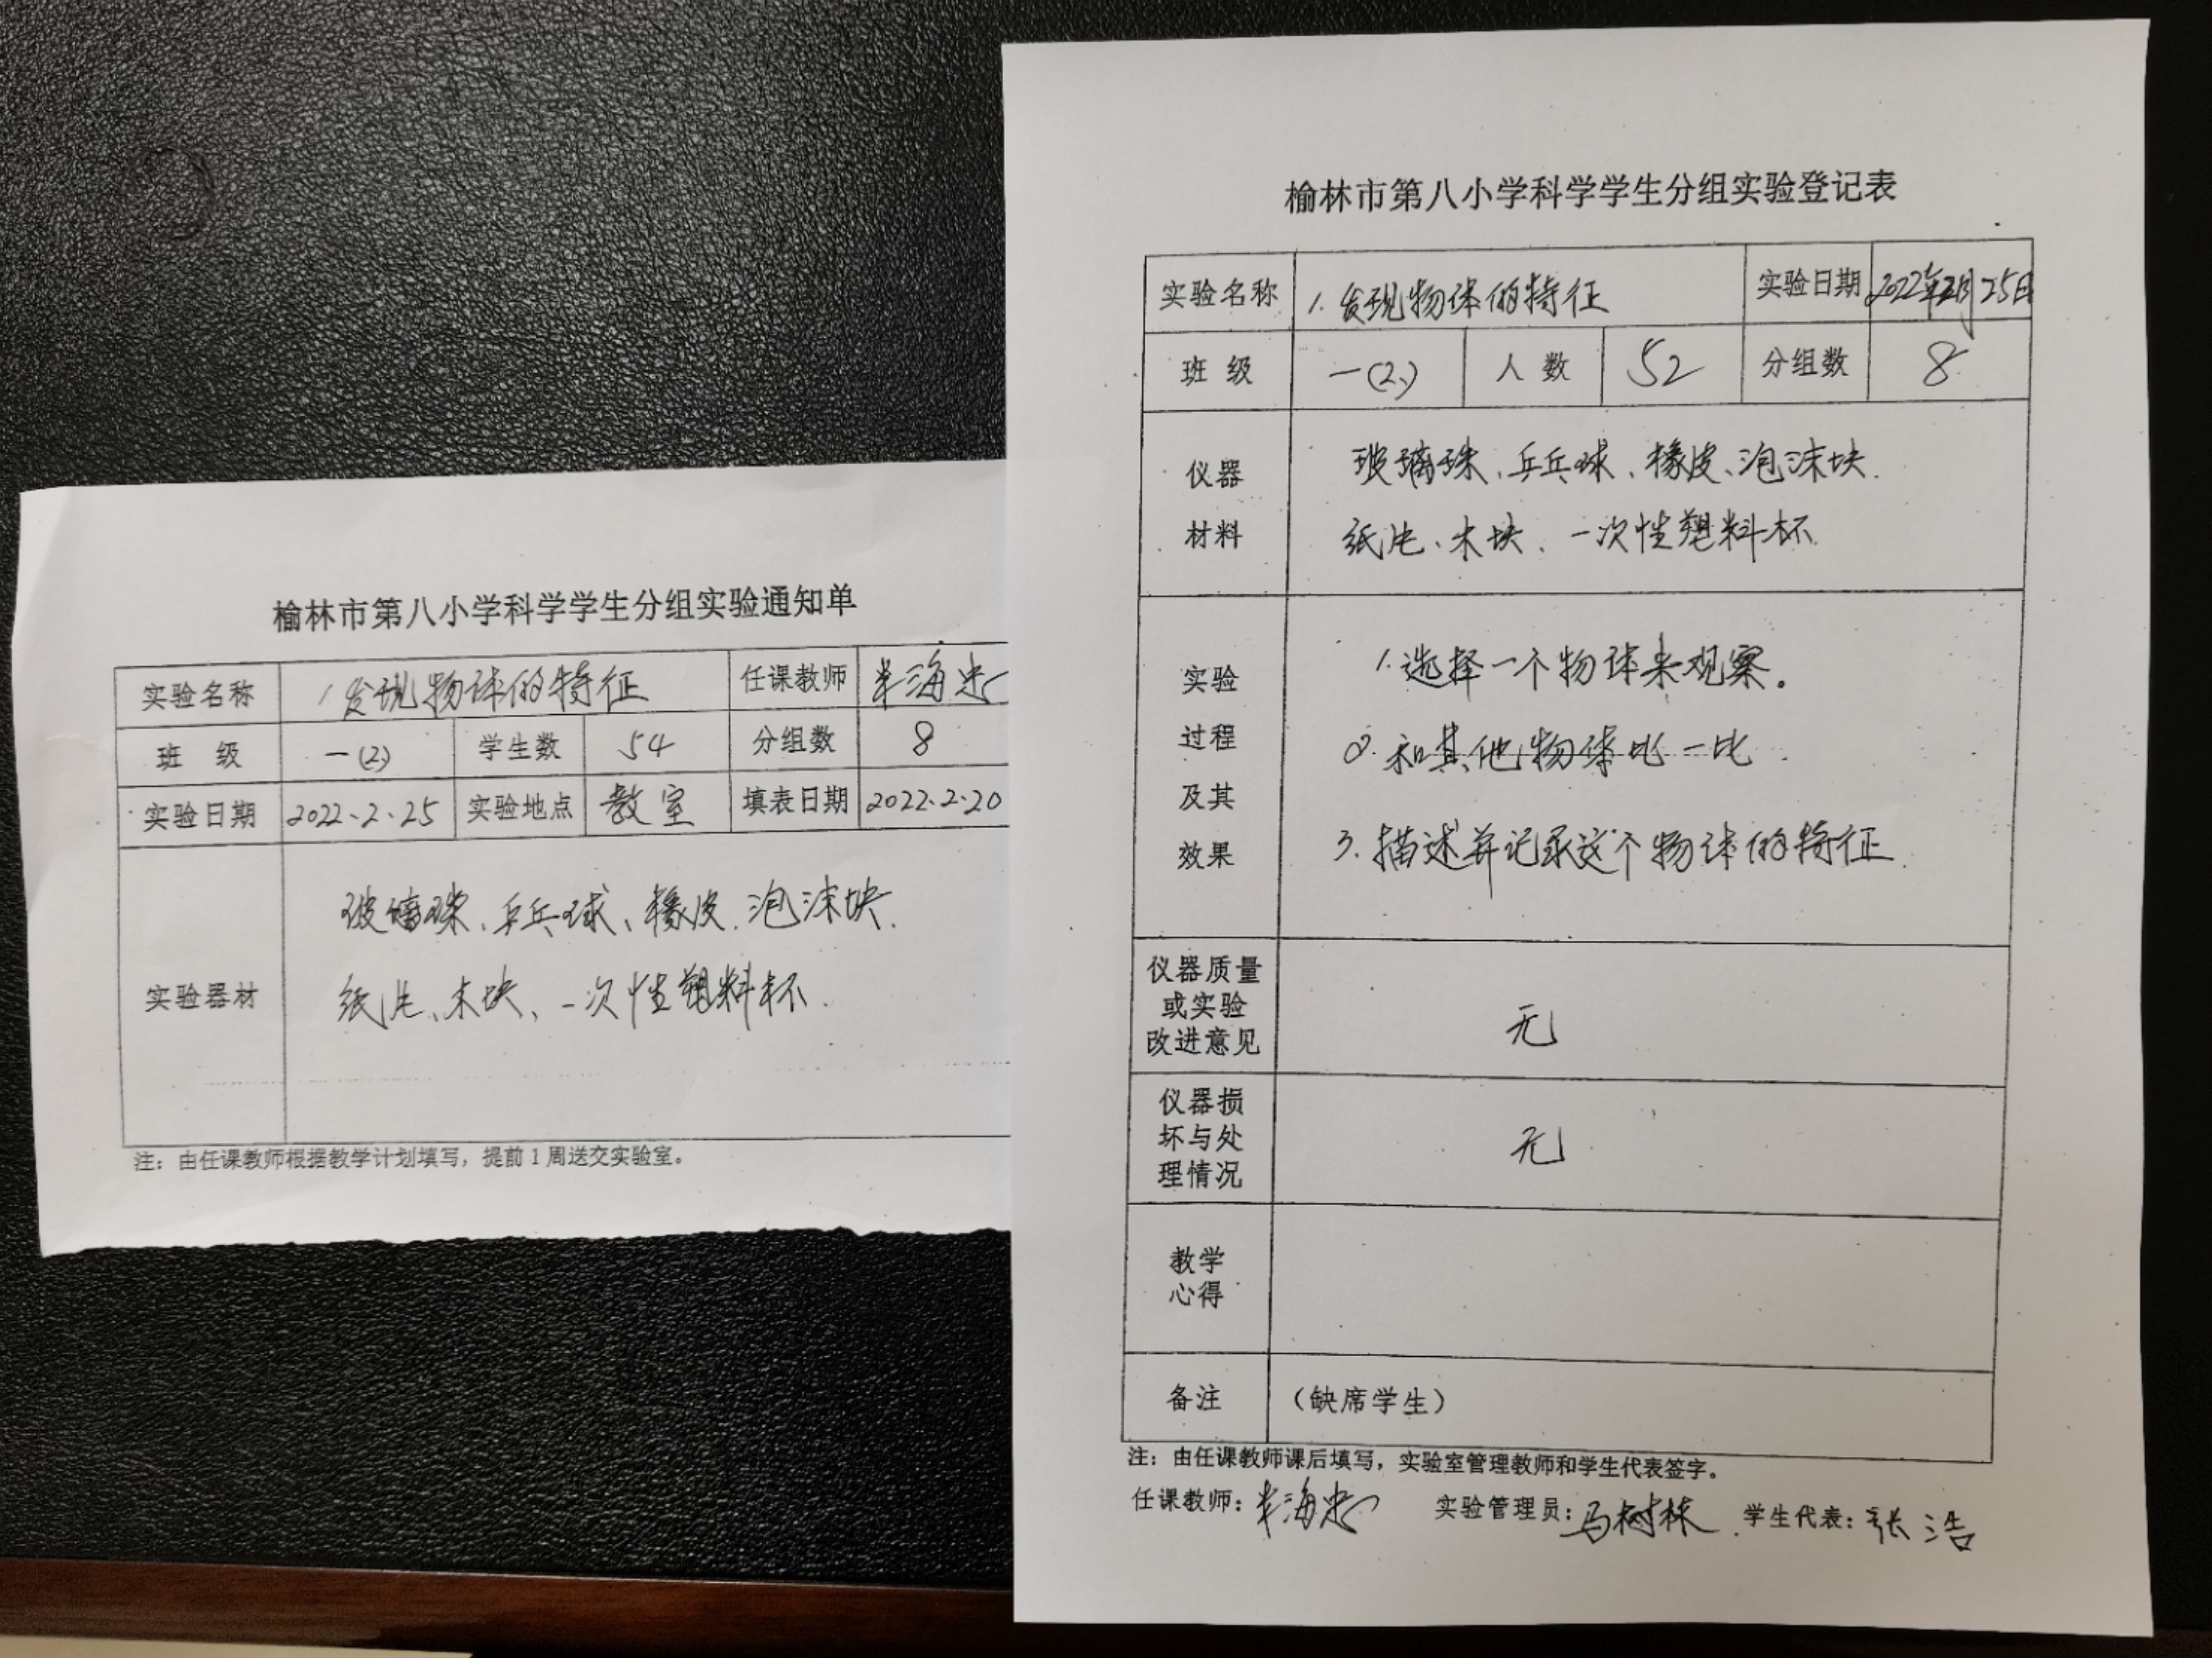 榆林市第八小学科学学生分组实验通知单
实验名称 1.发现物体的特征 任课教师 海忠
班 级 一(2) 学生数 54 分组数 8
实验日期 2022.2.25 实验地点 教室 填表日期 2022.2.20
实验器材
玻璃珠、乒乓球、橡皮、泡沫块、
纸片、木块、一次性塑料杯.
注：由任课教师根据教学计划填写，提前1周送交实验室。
榆林市第八小学科学学生分组实验登记表
实验名称 1.发现物体的特征 实验日期 2022年2月25日
班 级 一(2) 人 数 52 分组数 8
仪器
材料
玻璃珠、乒乓球、橡皮、泡沫块.
纸片、木块、一次性塑料杯
实验
过程
及其
效果
1.选择一个物体来观察。
2.和其他物体比一比.
3.描述并记录这个物体的特征.
仪器质量
或实验
改进意见
无
仪器损
坏与处
理情况
无
教学
心得
备注 （缺席学生）
注：由任课教师课后填写，实验室管理教师和学生代表签字。
任课教师：海忠 实验管理员：马树林 学生代表：张浩